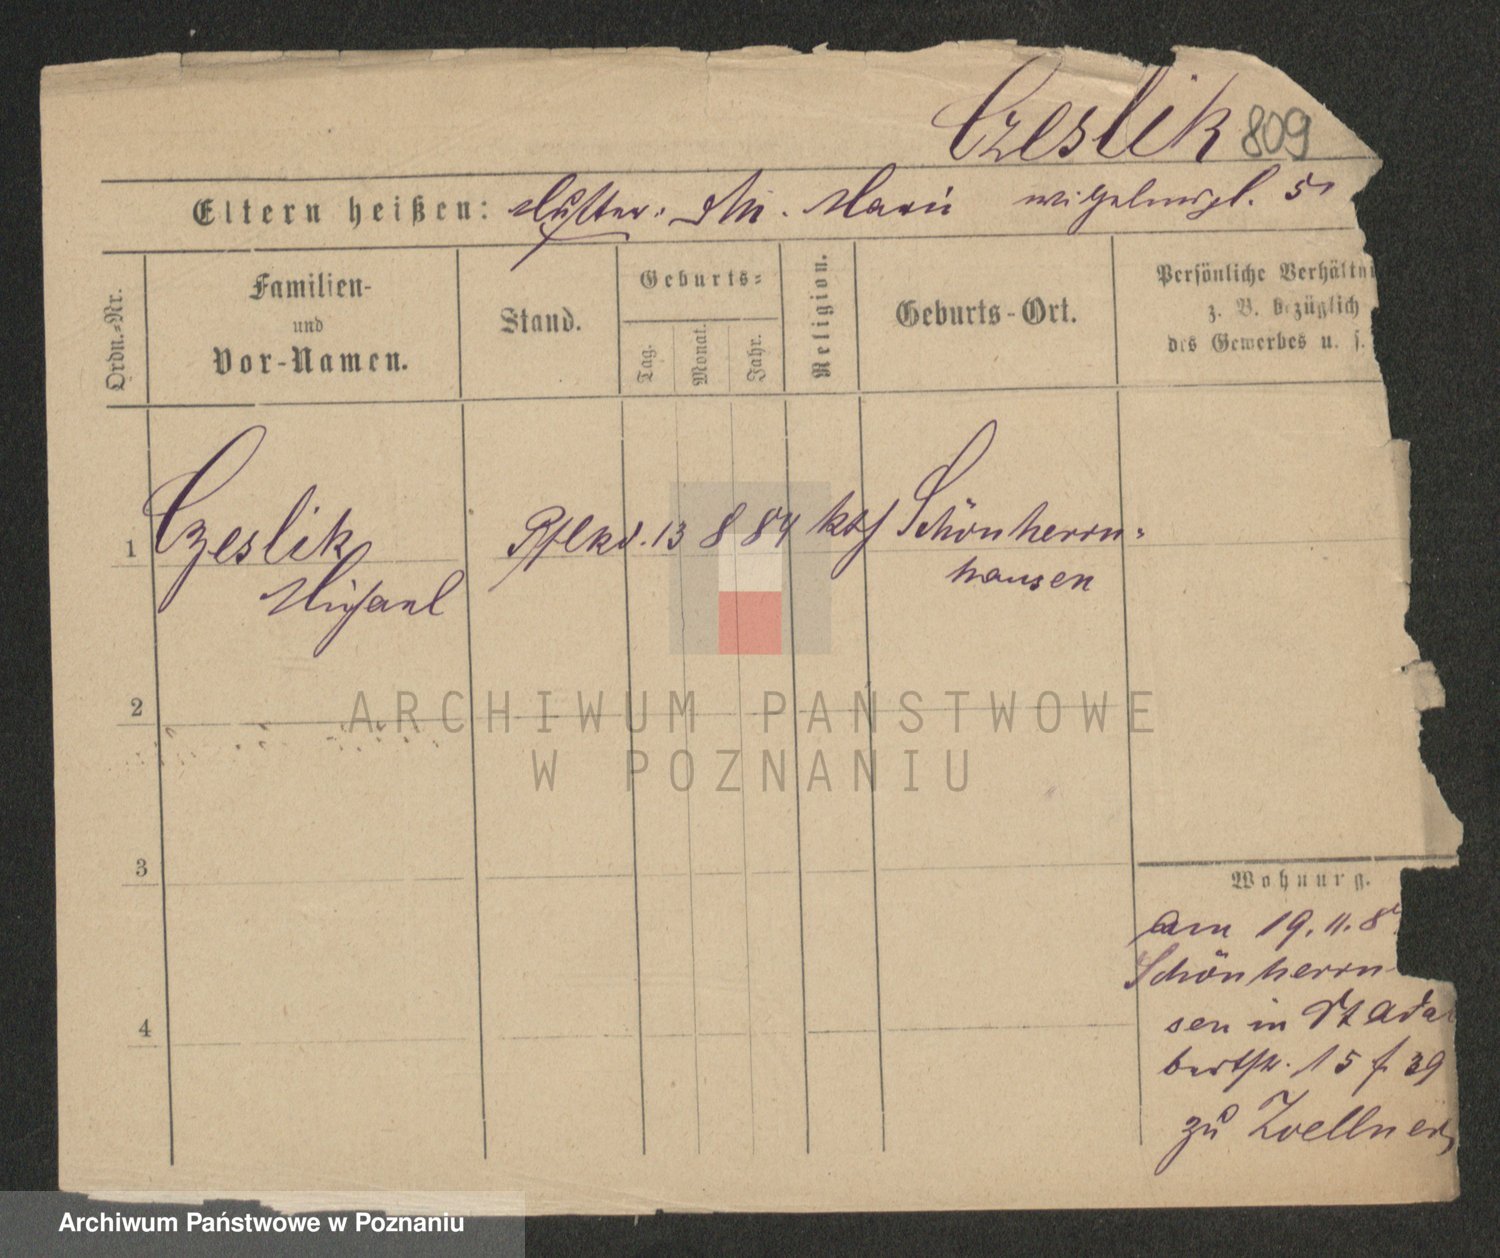 Czeslik 809
Eltern heißen: Mutter. Marie
Ordn.-Nr.
Familien-
und
Vor-Namen.
Stand.
Geburts-
Tag.
Monat.
Jahr.
Religion.
Geburts-Ort.
Persönliche Verhältni
z. B. bezüglich
des Gewerbes u. s.
1 Czeslik Pflkd. 13 8 84 kth Schönherrn-
Michael hausen
2
3
4
Wohnung.
am 19. 11. 8
Schönherrn-
sen in St Adal
bertstr. 15 f. 39
zu Zoellner
ARCHIWUM PAŃSTWOWE
W POZNANIU
Archiwum Państwowe w Poznaniu